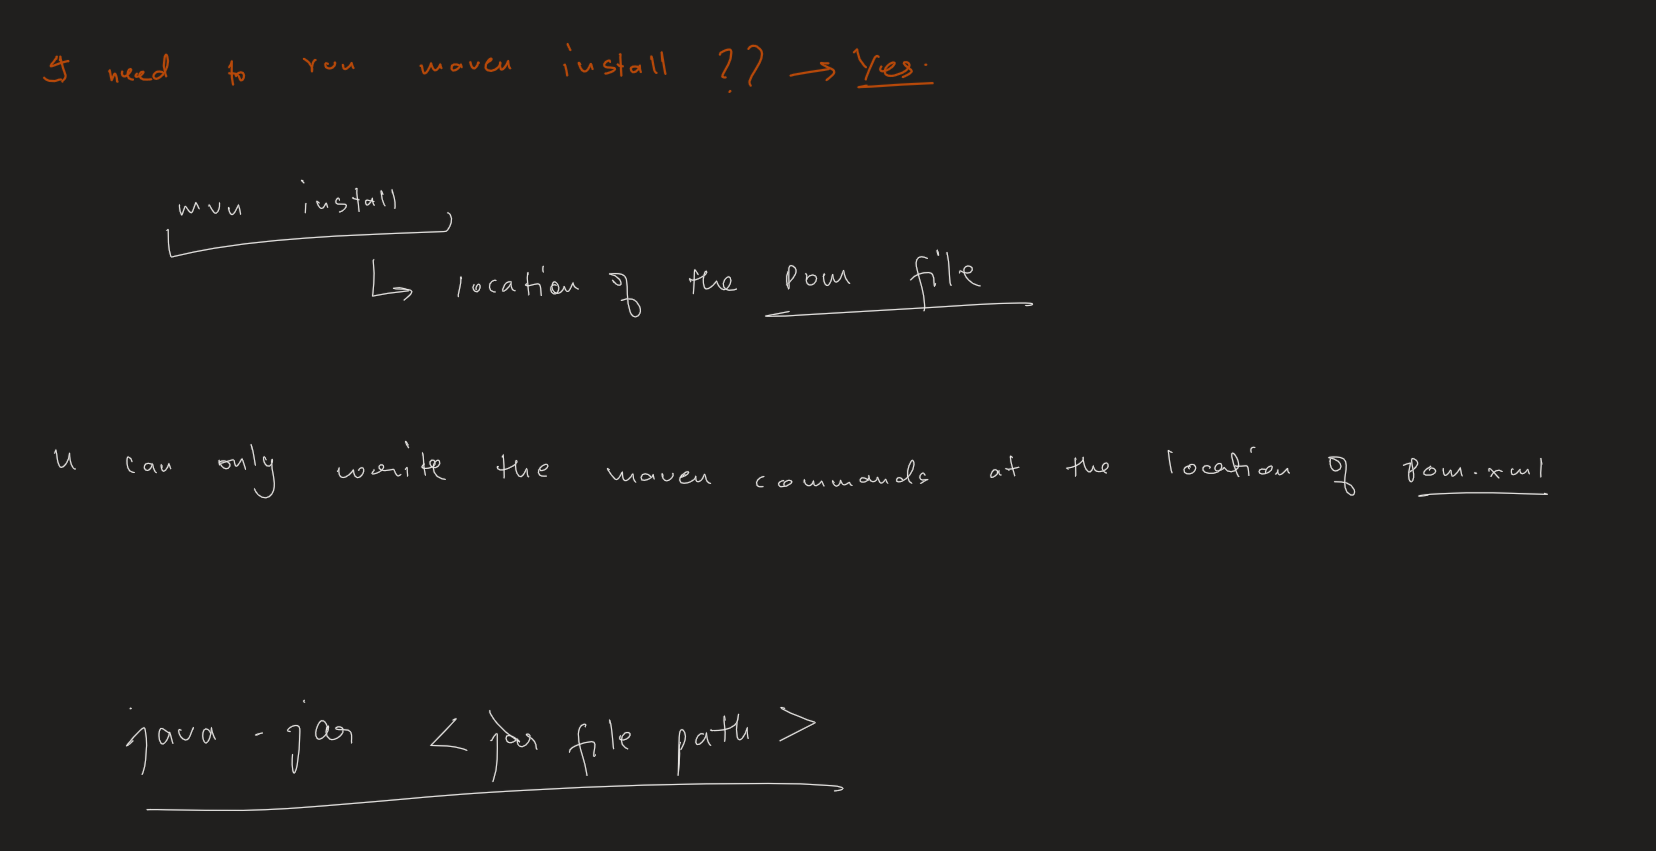 I need to run maven install ?? → Yes.
mvn install
↳ location of the pom file
u can only write the maven commands at the location of pom.xml
java -jar < jar file path >